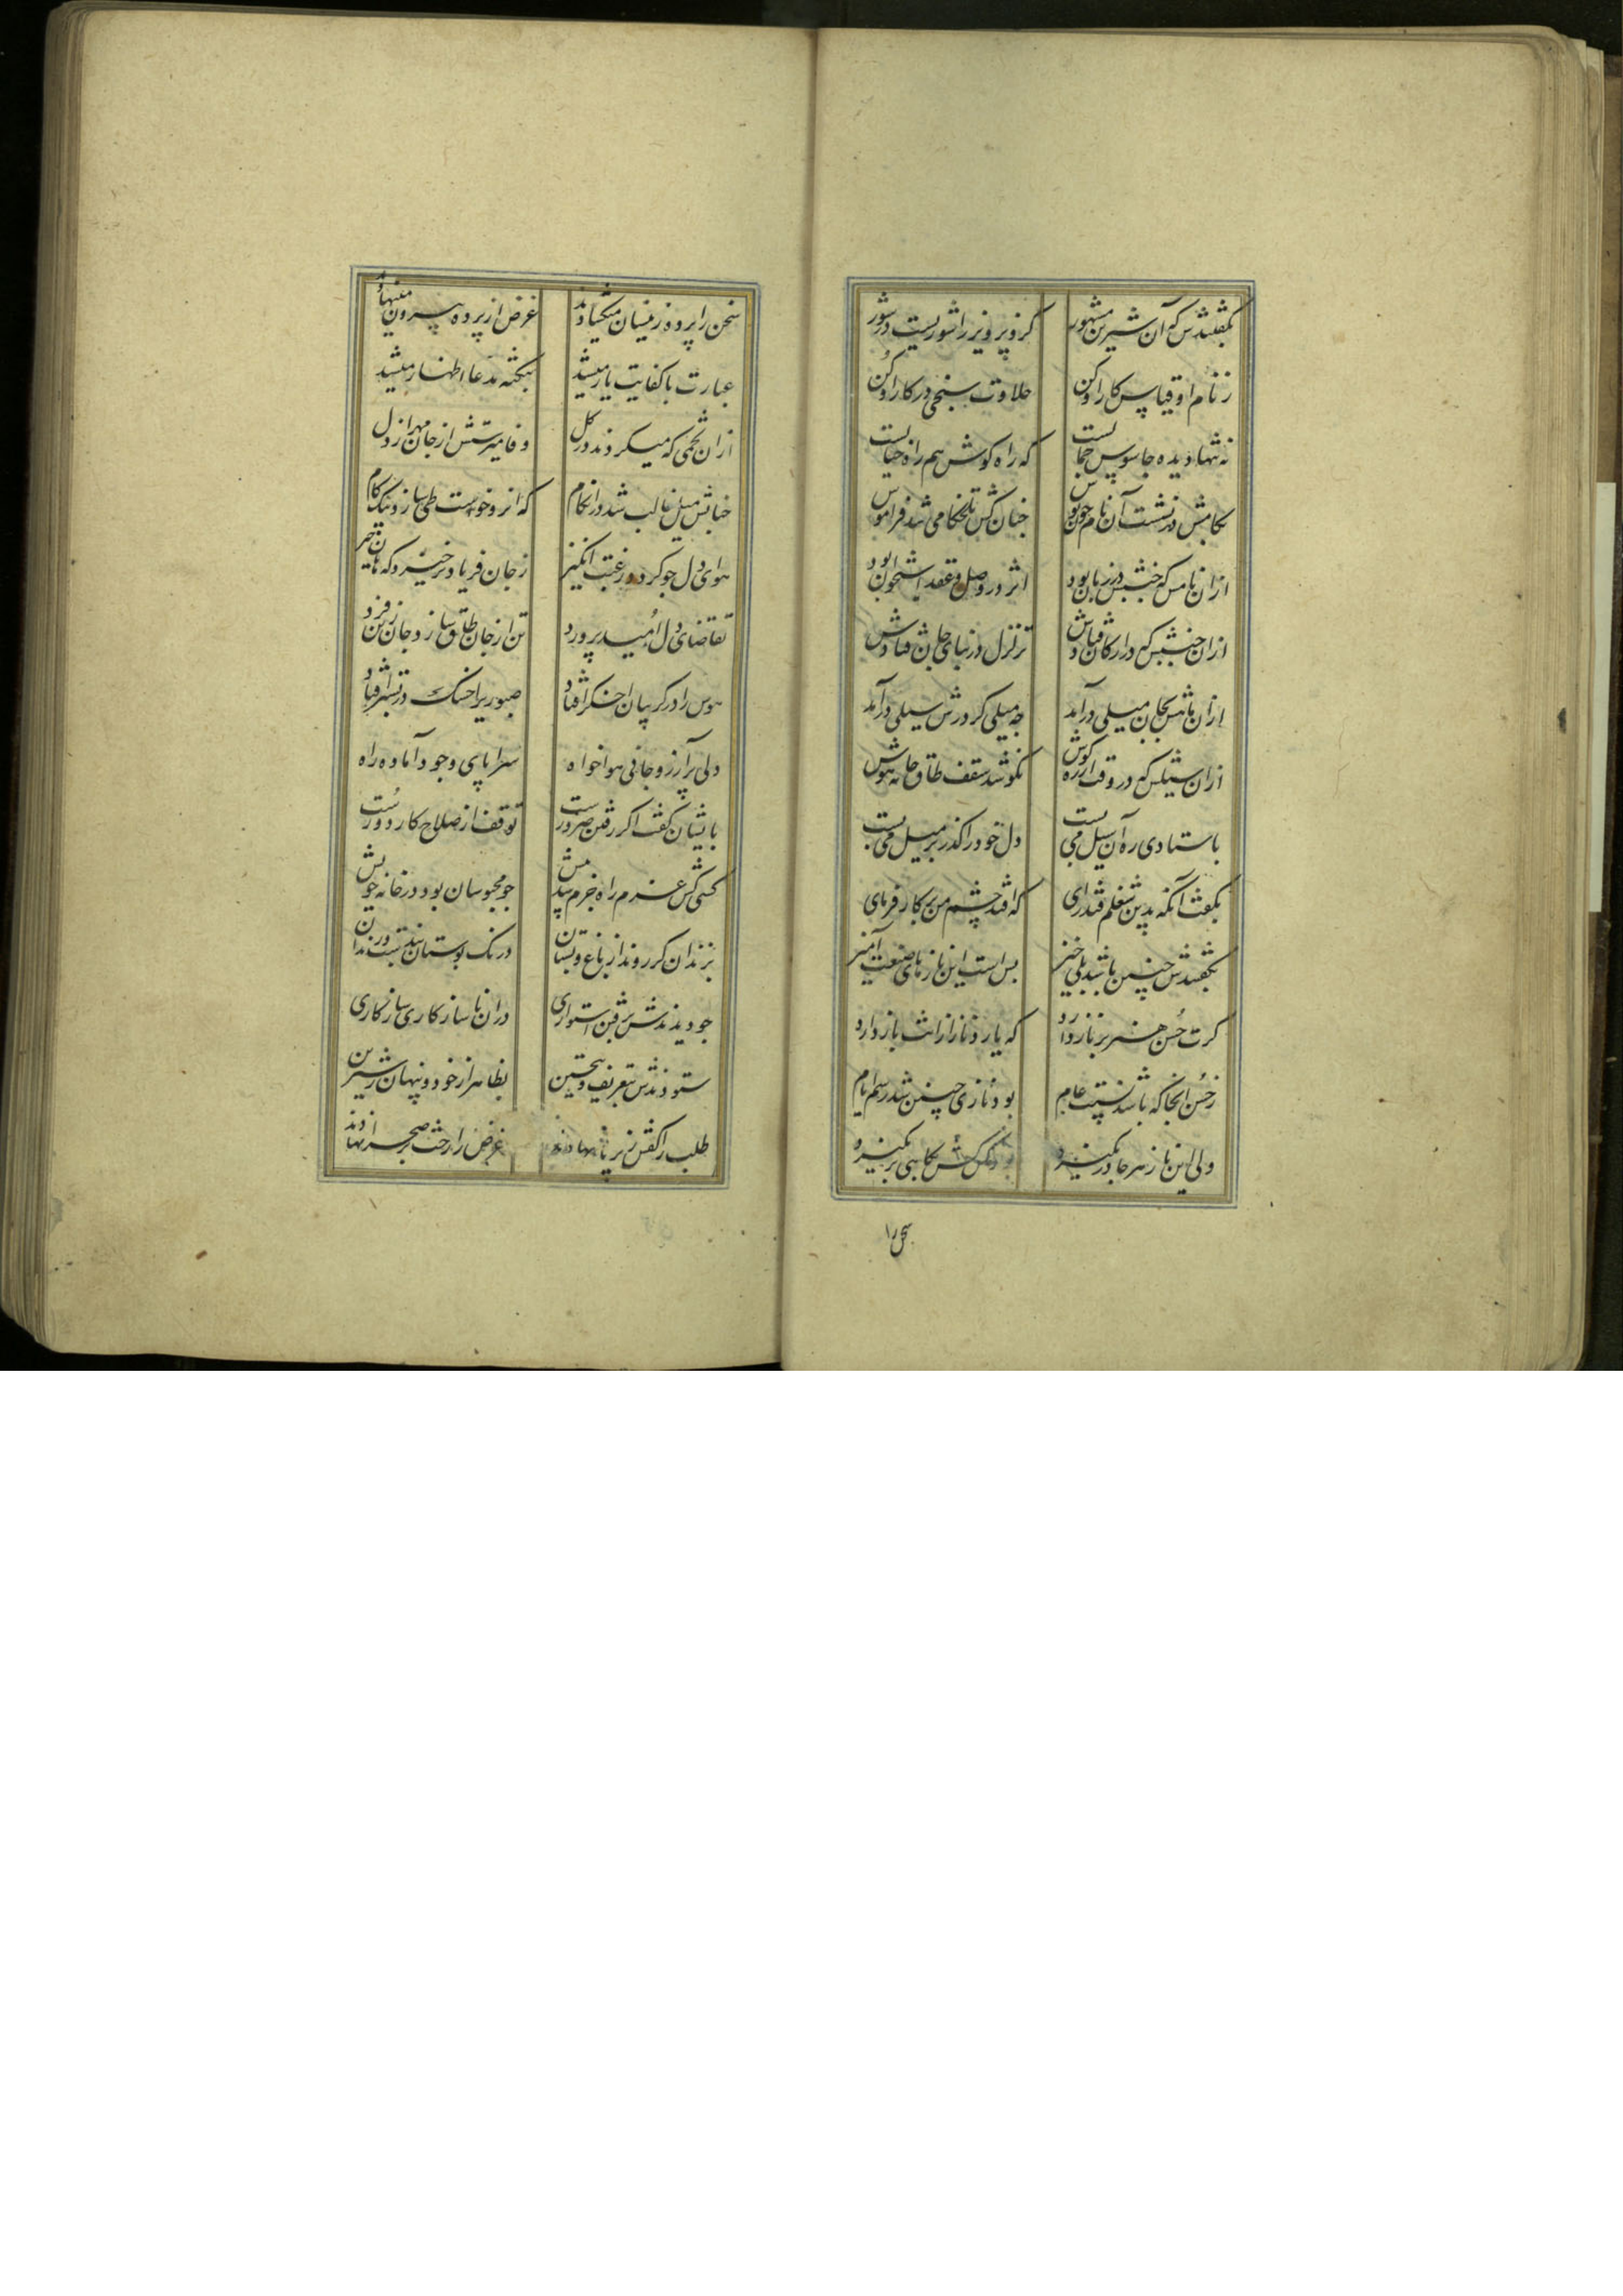 بگفتندش که آن شیرین مشهور کزو پرویز را شوریست در شور
ز نام او قیاس کار او کن حلاوت سنجی در کار او کن
نه تنها دیده جاسوس جمالست که راه گوش هم راه خیالست
بکامش در نشست آن نام چون نوش چنان کش تلخکامی شد فراموش
ازان نامش که جنبش در زبان بود اثر در وصل و عقد استخوان بود
ازان جنبش که در ارکان فتادش تزلزل در بنای جان فتادش
ازان نامش بجان میلی درآمد چه میلی کز درش سیلی درآمد
ازان سیلش که در رفت از ره گوش نگون شد سقف طاق خانه هوش
باستادی ره آن سیل می‌بست دل خود را گذر بر میل می‌بست
بگفت آنگه بدین شغلم فتد رای که افتد چشم من بر کارفرمای
بگفتندش چنین باشد بلی خیز بس است این نازهای صنعت آمیز
گرت حسن هنر بر ناز دارد که یارد ناز ازانت باز دارد
ز حسن آنجا که باشد نسبت عام بود نازی چنین شد رسم ایام
ولی این ناز هر جا در نگیرد کش کابی بر نگیرد
سخن را
سخن را پرده زینسان میگشادند غرض از پرده بیرون مینهادند
عبارت با کفایت یار میشد بنکته مدعا اظهار میشد
ازان تخمی که میکردند در گل وفا میرستش از جان مهر از دل
چنانش میل غالب شد در آن کام که از رو خواست طی سازد بیک گام
هوای دل چو گردد رغبت انگیز ز جان فریاد برخیزد که هان خیز
تقاضای دل امید پرورد تن از جان طاق سازد جان ز تن فرد
هوس را در گریبان اخگر افتاد صبوری را خسک در بستر افتاد
دلی پر آرزو جانی هواخواه سراپای وجود آماده راه
بایشان گفت اگر رفتن ضرورست توقف از صلاح کار دورست
کسی کش عزم راه جزم شد پیش چو محبوسان بود در خانه خویش
بزندان گر روند از باغ و بستان درنگ بوستان بندست و زندان
چو دیدندش برفتن استواری دران ناسازگاری سازگاری
ستودندش بتعریف و بتحسین بظاهر از خود و پنهان ز شیرین
طلب را کفش زیر پا نهادند غرض را رخت بر صحرا نهادند